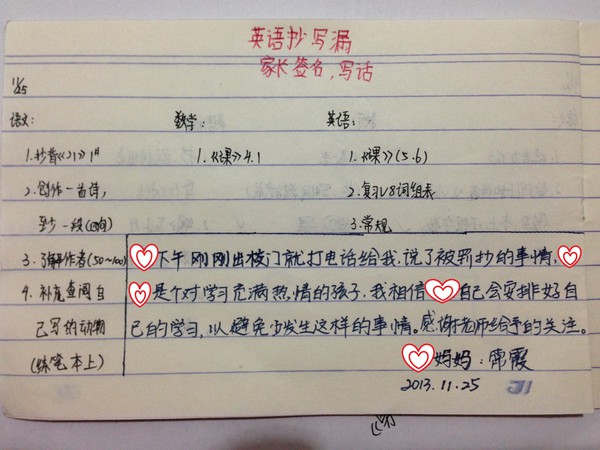 英语抄写漏
家长签名,写话
11/25
语文: 数学: 英语:
1.抄背《21》1# 1.《课》4.1 1.《课》(5.6)
2.创作一首诗, 2.复习V8词组表
至少一段(四句) 3.常规
3.了解作者(50~100)
4.补充查阅自
己写的动物
(练笔本上)
下午刚刚出校门就打电话给我,说了被罚抄的事情,
是个对学习充满热情的孩子.我相信 自己会安排好自
己的学习,以避免少发生这样的事情。感谢老师给予的关注。
妈妈:席霞
2013.11.25